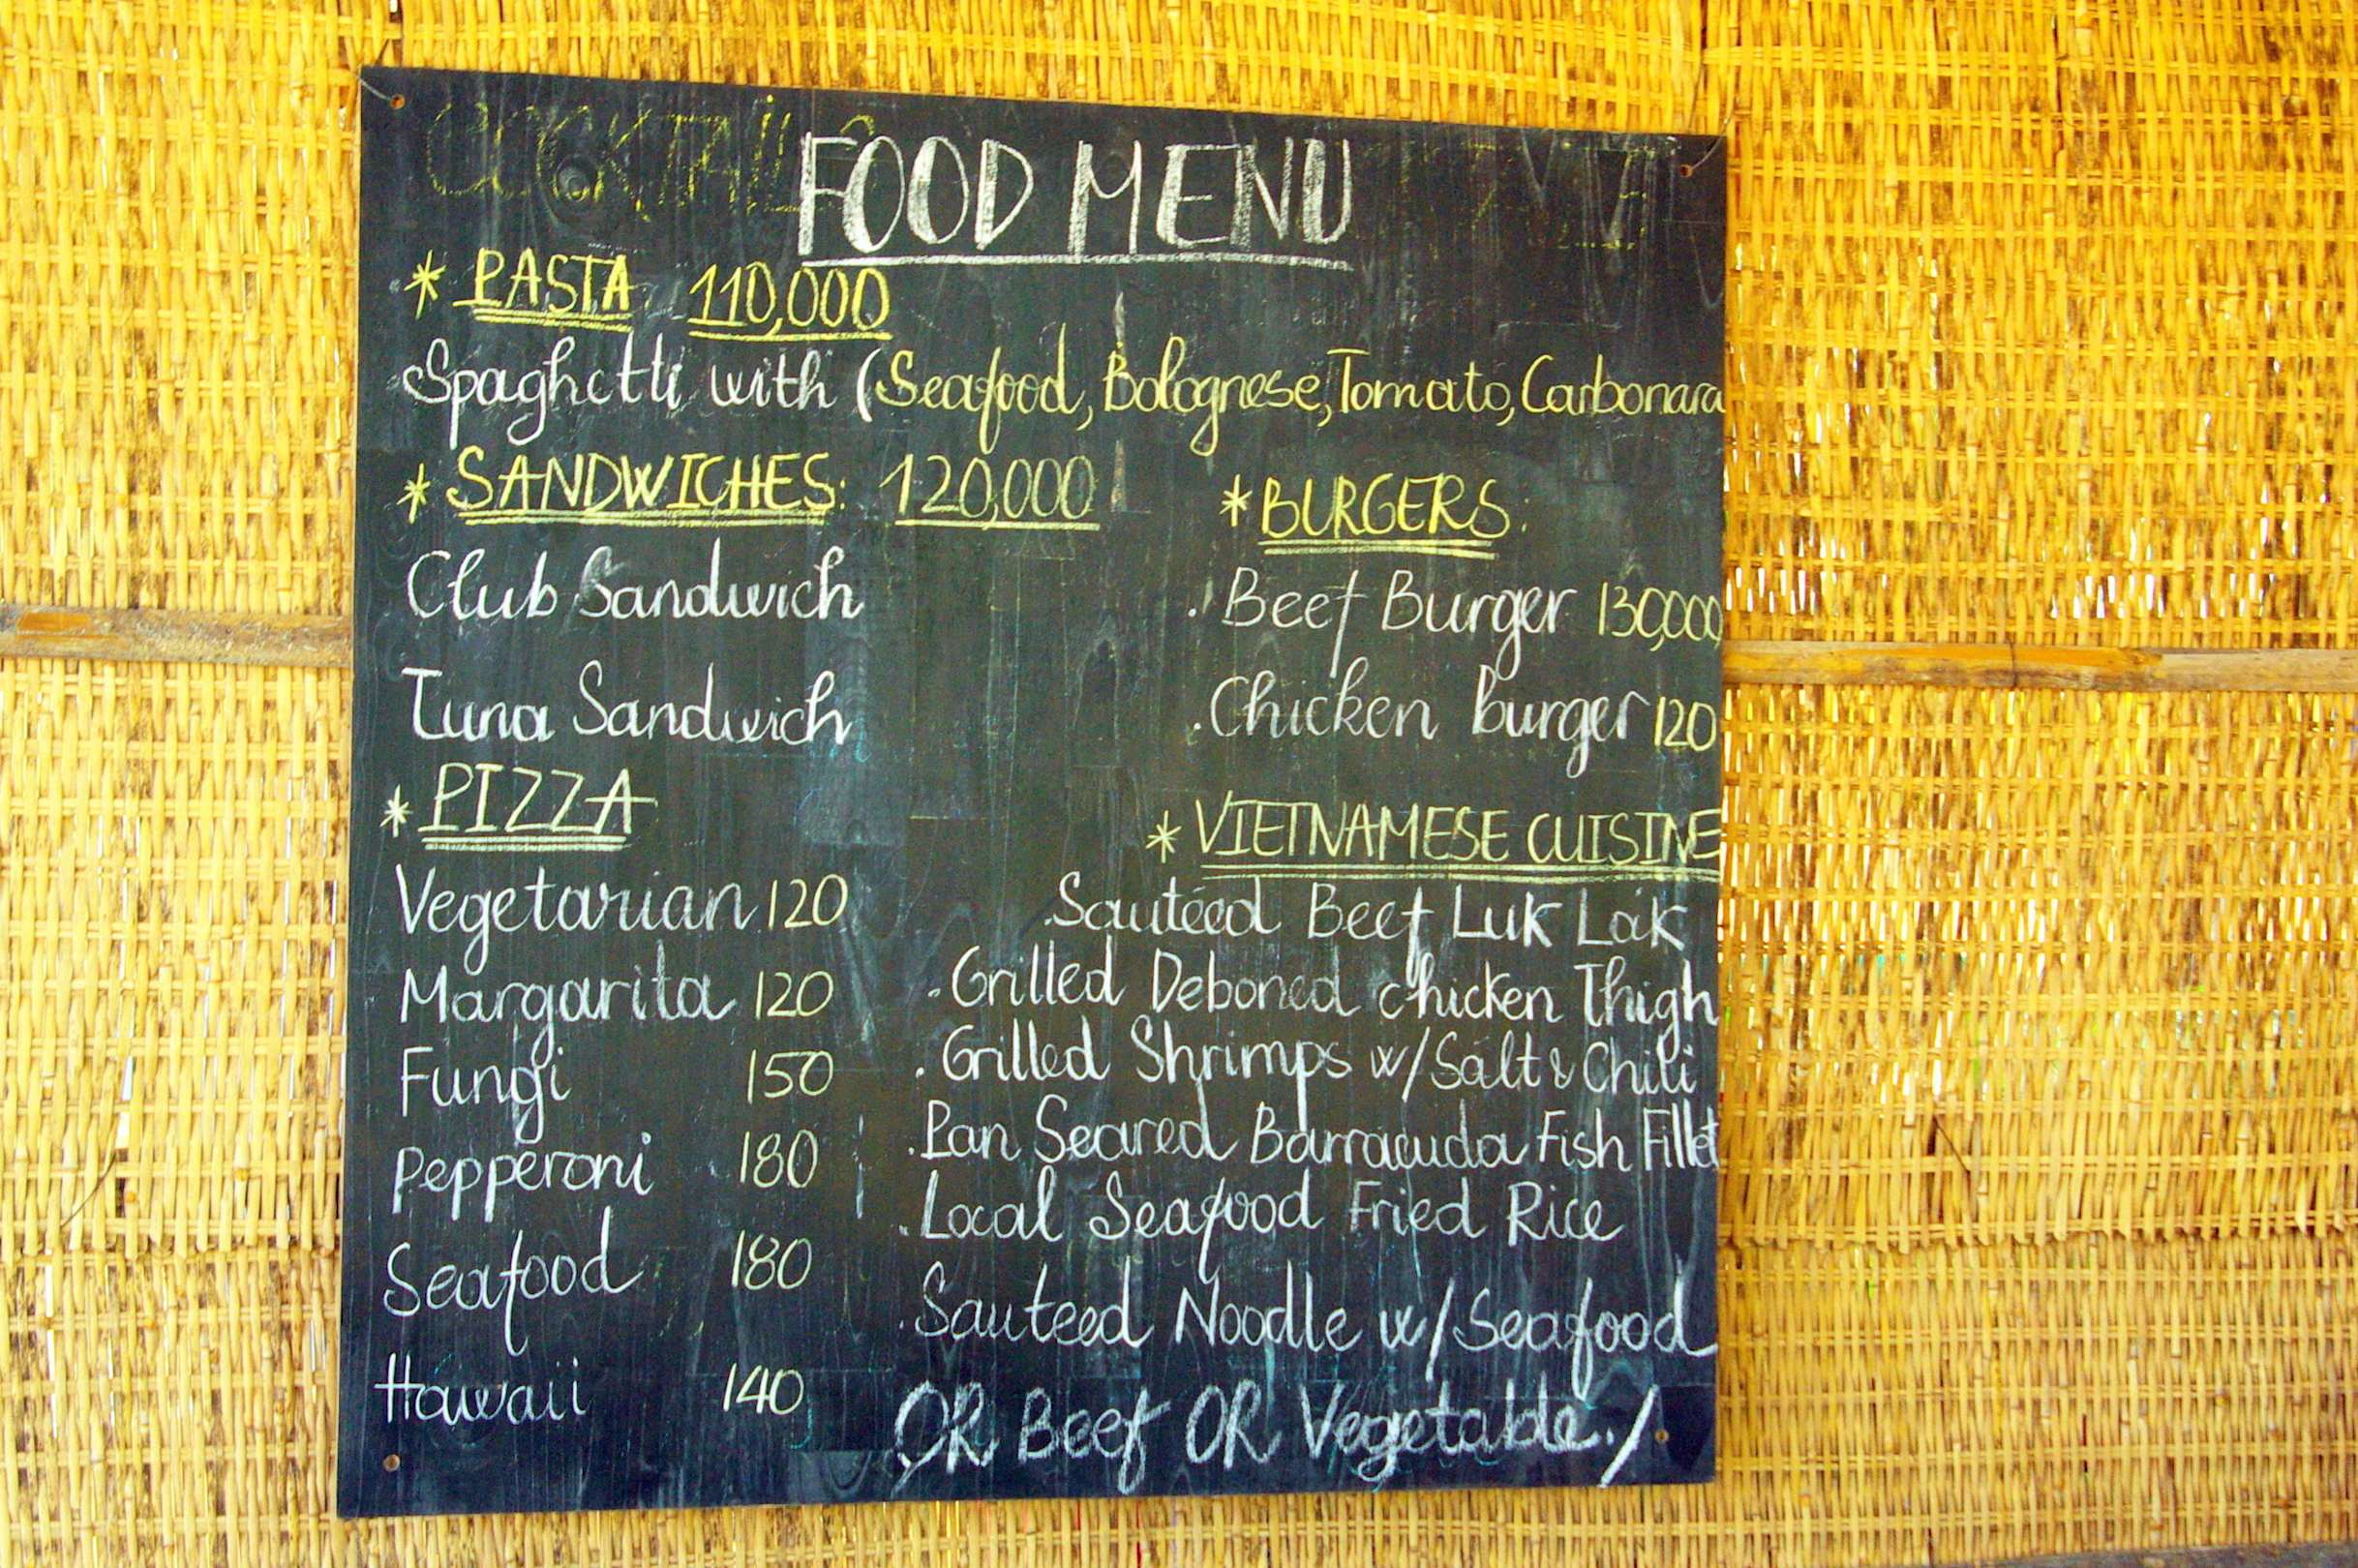 COCKTAIL
FOOD MENU
* PASTA: 110,000
Spaghetti with (Seafood, Bolognese, Tomato, Carbonara
* SANDWICHES: 120,000
Club Sandwich
Tuna Sandwich
* BURGERS:
. Beef Burger 130,000
. Chicken burger 120
* PIZZA
Vegetarian 120
Margarita 120
Fungi 150
Pepperoni 180
Seafood 180
Hawaii 140
* VIETNAMESE CUISINE
. Sauteed Beef Luk Lak
. Grilled Deboned chicken Thigh
. Grilled Shrimps w/Salt & Chili
. Pan Seared Barracuda Fish Fillet
. Local Seafood Fried Rice
. Sauteed Noodle w/Seafood
OR Beef OR Vegetable./